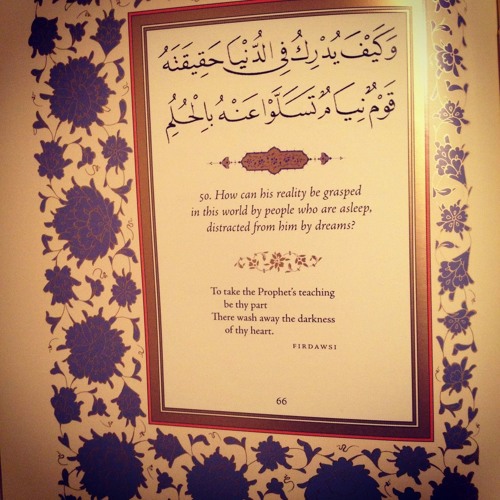 وَكَيْفَ يُدْرِكُ فِي الدُّنْيَا حَقِيقَتَهُ
قَوْمٌ نِيَامٌ تَسَلَّوْا عَنْهُ بِالْحُلُمِ
50. How can his reality be grasped
in this world by people who are asleep,
distracted from him by dreams?
To take the Prophet's teaching
be thy part
There wash away the darkness
of thy heart.
FIRDAWSI
66